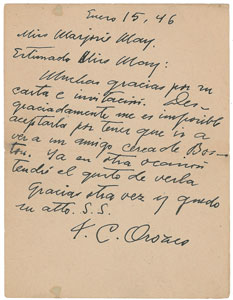 Enero 15, 46
Miss Marjorie May.
Estimada Miss May:
Muchas gracias por su
carta e invitación. Des-
graciadamente me es imposible
aceptarla por tener que ir a
ver a un amigo cerca de Bos-
ton. Ya en otra ocasión
tendré el gusto de verla
Gracias otra vez y quedo
su atto. S.S.
J. C. Orozco